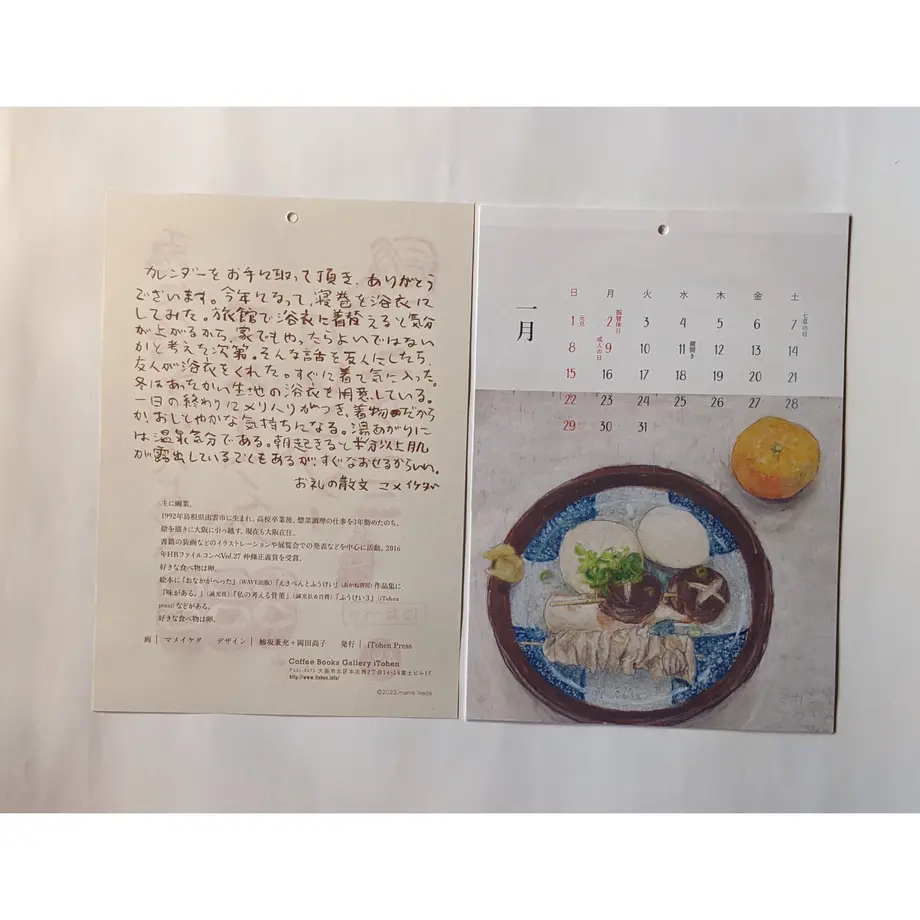 カレンダーをお手に取って頂き、ありがとう
ございます。今年になって、寝巻を浴衣に
してみた。旅館で浴衣に着替えると気分
が上がるから、家でもやったらよいではない
かと考えた次第。そんな話を友人にしたら、
友人が浴衣をくれた。すぐに着て気に入った。
冬はあったかい生地の浴衣を用意している。
一日の終わりにメリハリがつき、着物だから
か、おしとやかな気持ちになる。湯あがりに
は温泉気分である。朝起きると半分以上肌
が露出しているこくもあるが、すぐなおせるからいい。
お礼の散文 マメイケダ
主に画業。
1992年島根県出雲市に生まれ。高校卒業後、惣菜調理の仕事を3年勤めたのち、
絵を描きに大阪に引っ越す。現在も大阪在住。
書籍の装画などのイラストレーションや展覧会での発表などを中心に活動。2016
年HBファイルコンペVol.27 仲條正義賞を受賞。
好きな食べ物は卵。
絵本に『おなかがへった』(WAVE出版)『えきべんとふうけい』(あかね書房) 作品集に
『味がある。』(誠光社)『私の考える骨董』(誠光社・自費)『ふうけい3』(iTohen
press)などがある。
好きな食べ物は卵。
画 | マメイケダ デザイン | 鯵坂兼充+岡田尚子 発行 | iTohen Press
Coffee Books Gallery iTohen
〒531-0073 大阪市北区本庄西2丁目14-18富士ビル1F
http://www.itohen.info/
©2023,mame ikeda
一月
日 月 火 水 木 金 土
1 元旦 2 振替休日 3 4 5 6 7 七草の日
8 9 成人の日 10 11 鏡開き 12 13 14
15 16 17 18 19 20 21
22 23 24 25 26 27 28
29 30 31